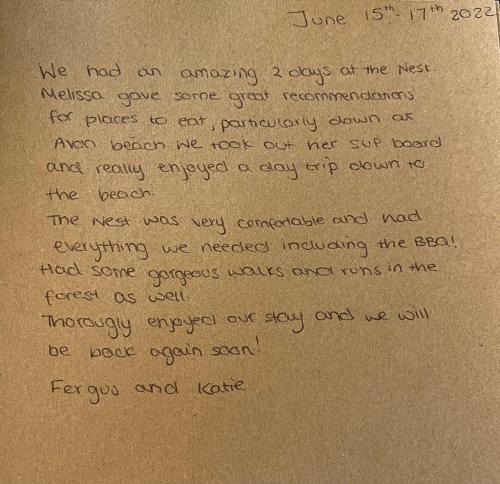 June 15th - 17th 2022
We had an amazing 2 days at the Nest.
Melissa gave some great recommendations
for places to eat, particularly down at
Avon beach. We took out her sup board
and really enjoyed a day trip down to
the beach.
The Nest was very comfortable and had
everything we needed including the BBQ!
Had some gorgeous walks and runs in the
forest as well.
Thorougly enjoyed our stay and we will
be back again soon!
Fergus and Katie